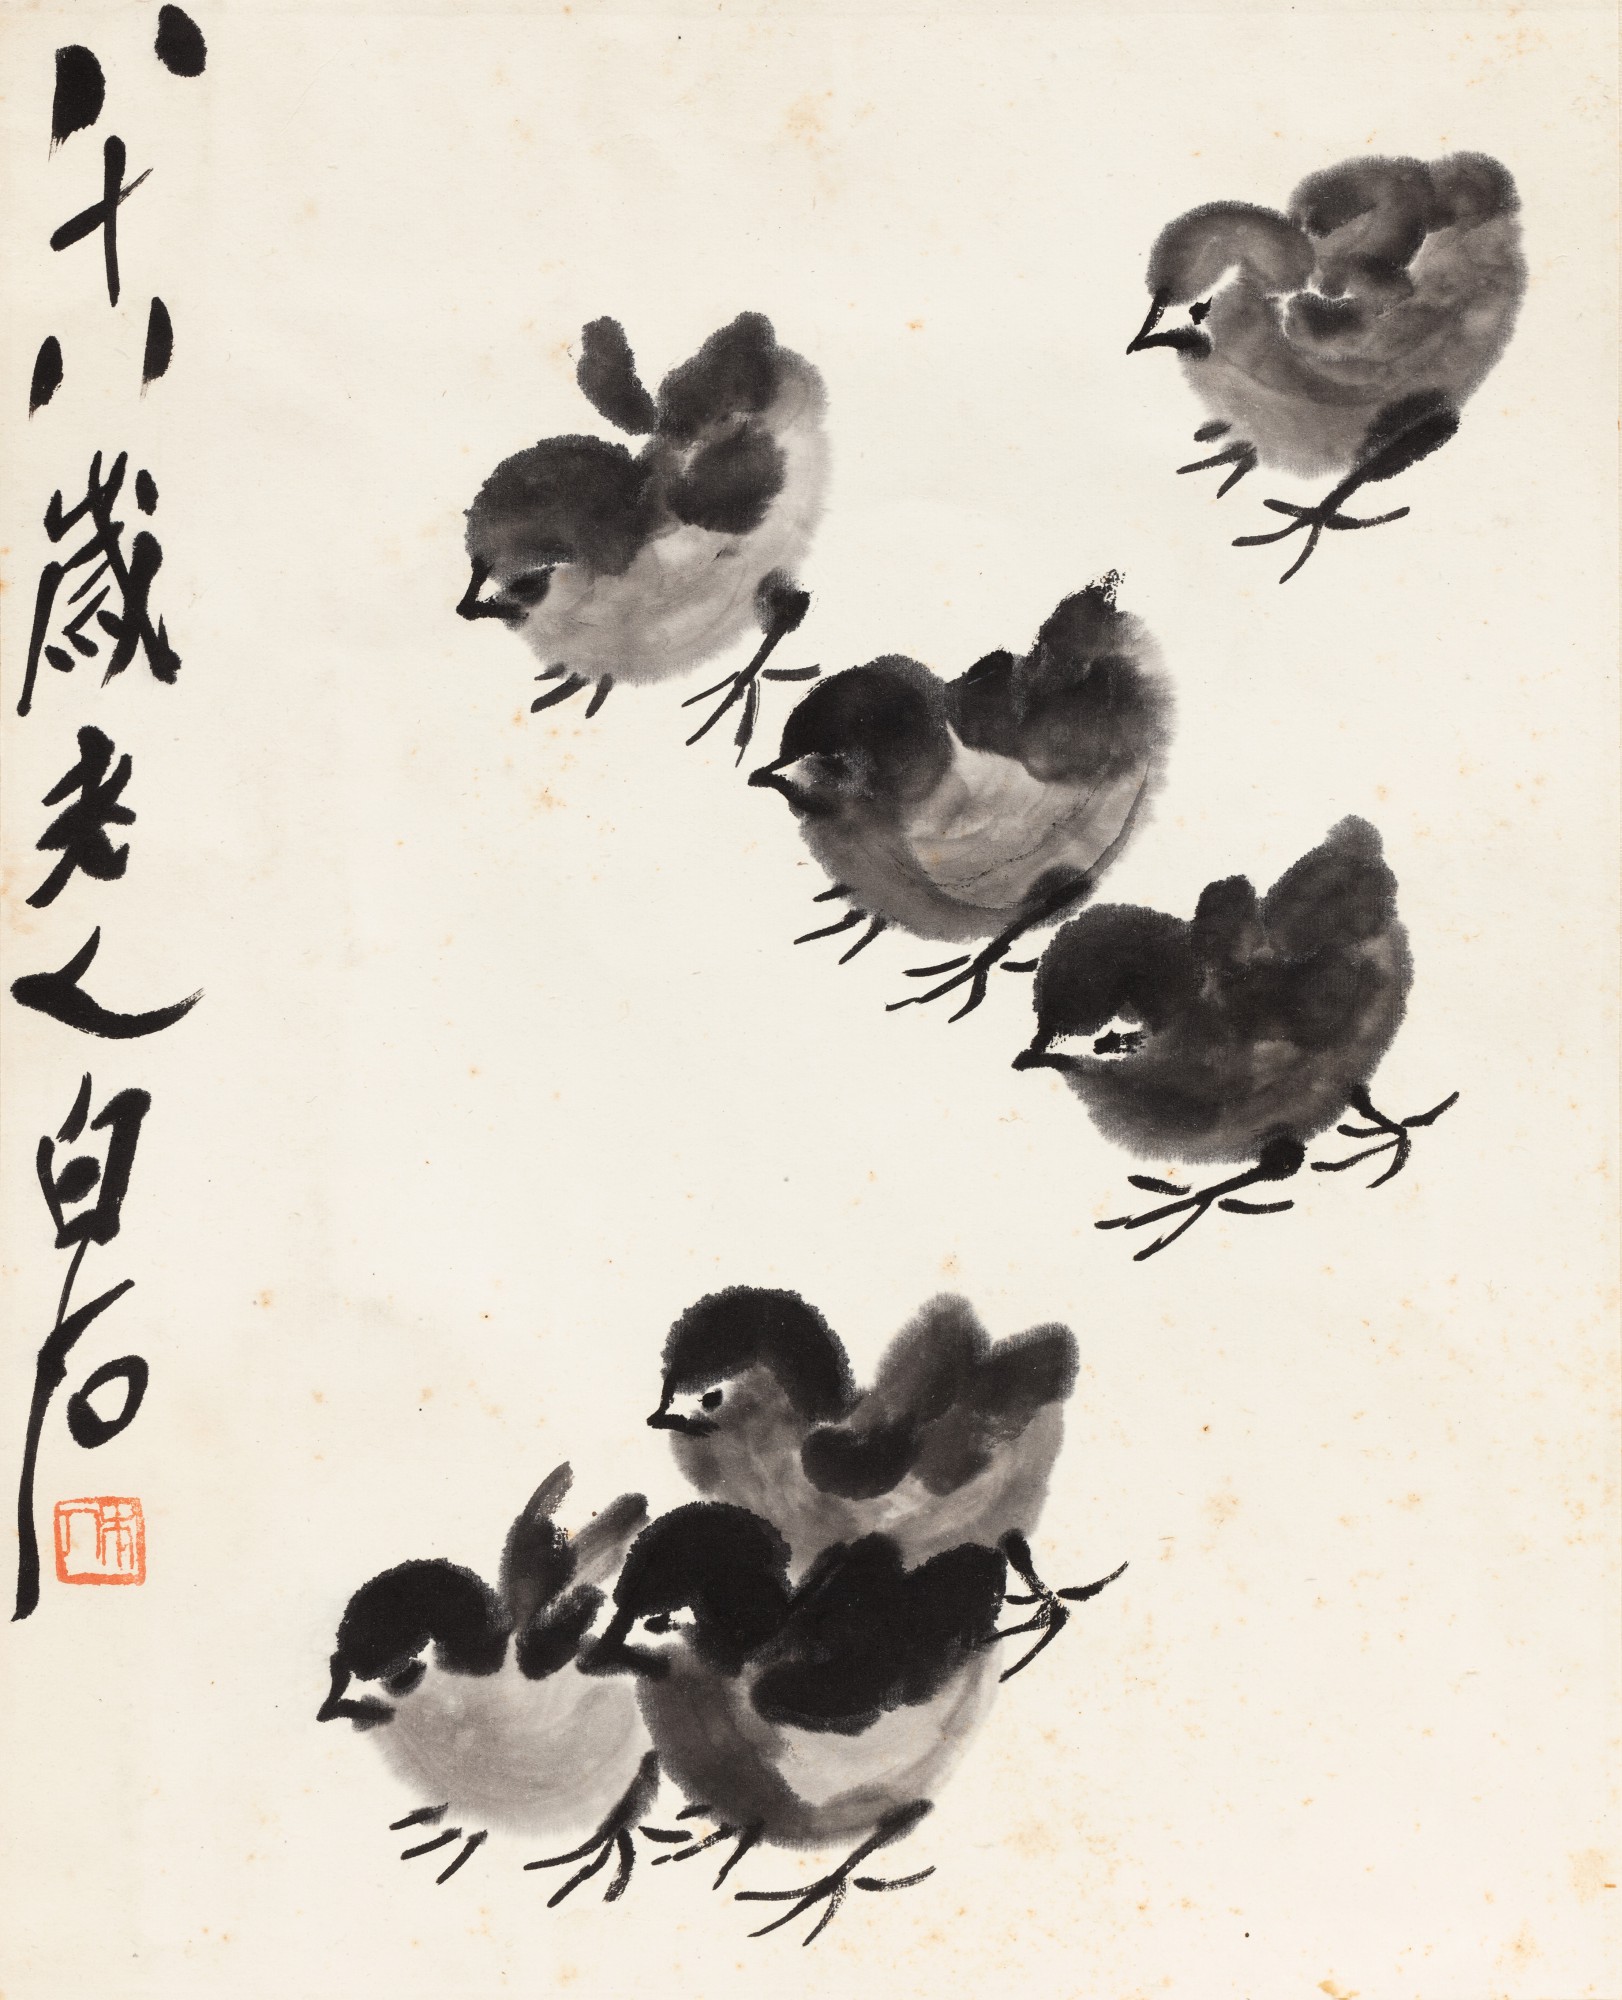 八十八歲老人白石
木人